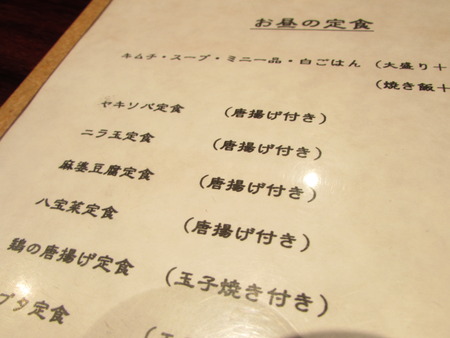 お昼の定食
キムチ・スープ・ミニ一品・白ごはん (大盛り+
(焼き飯+
ヤキソバ定食 (唐揚げ付き)
ニラ玉定食 (唐揚げ付き)
麻婆豆腐定食 (唐揚げ付き)
八宝菜定食 (唐揚げ付き)
鶏の唐揚げ定食 (玉子焼き付き)
ブタ定食